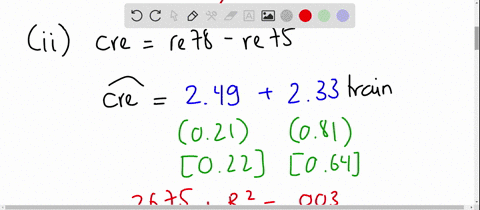 (ii) cre = re78 - re75
ĉre = 2.49 + 2.33 train
(0.21) (0.81)
[0.22] [0.64]